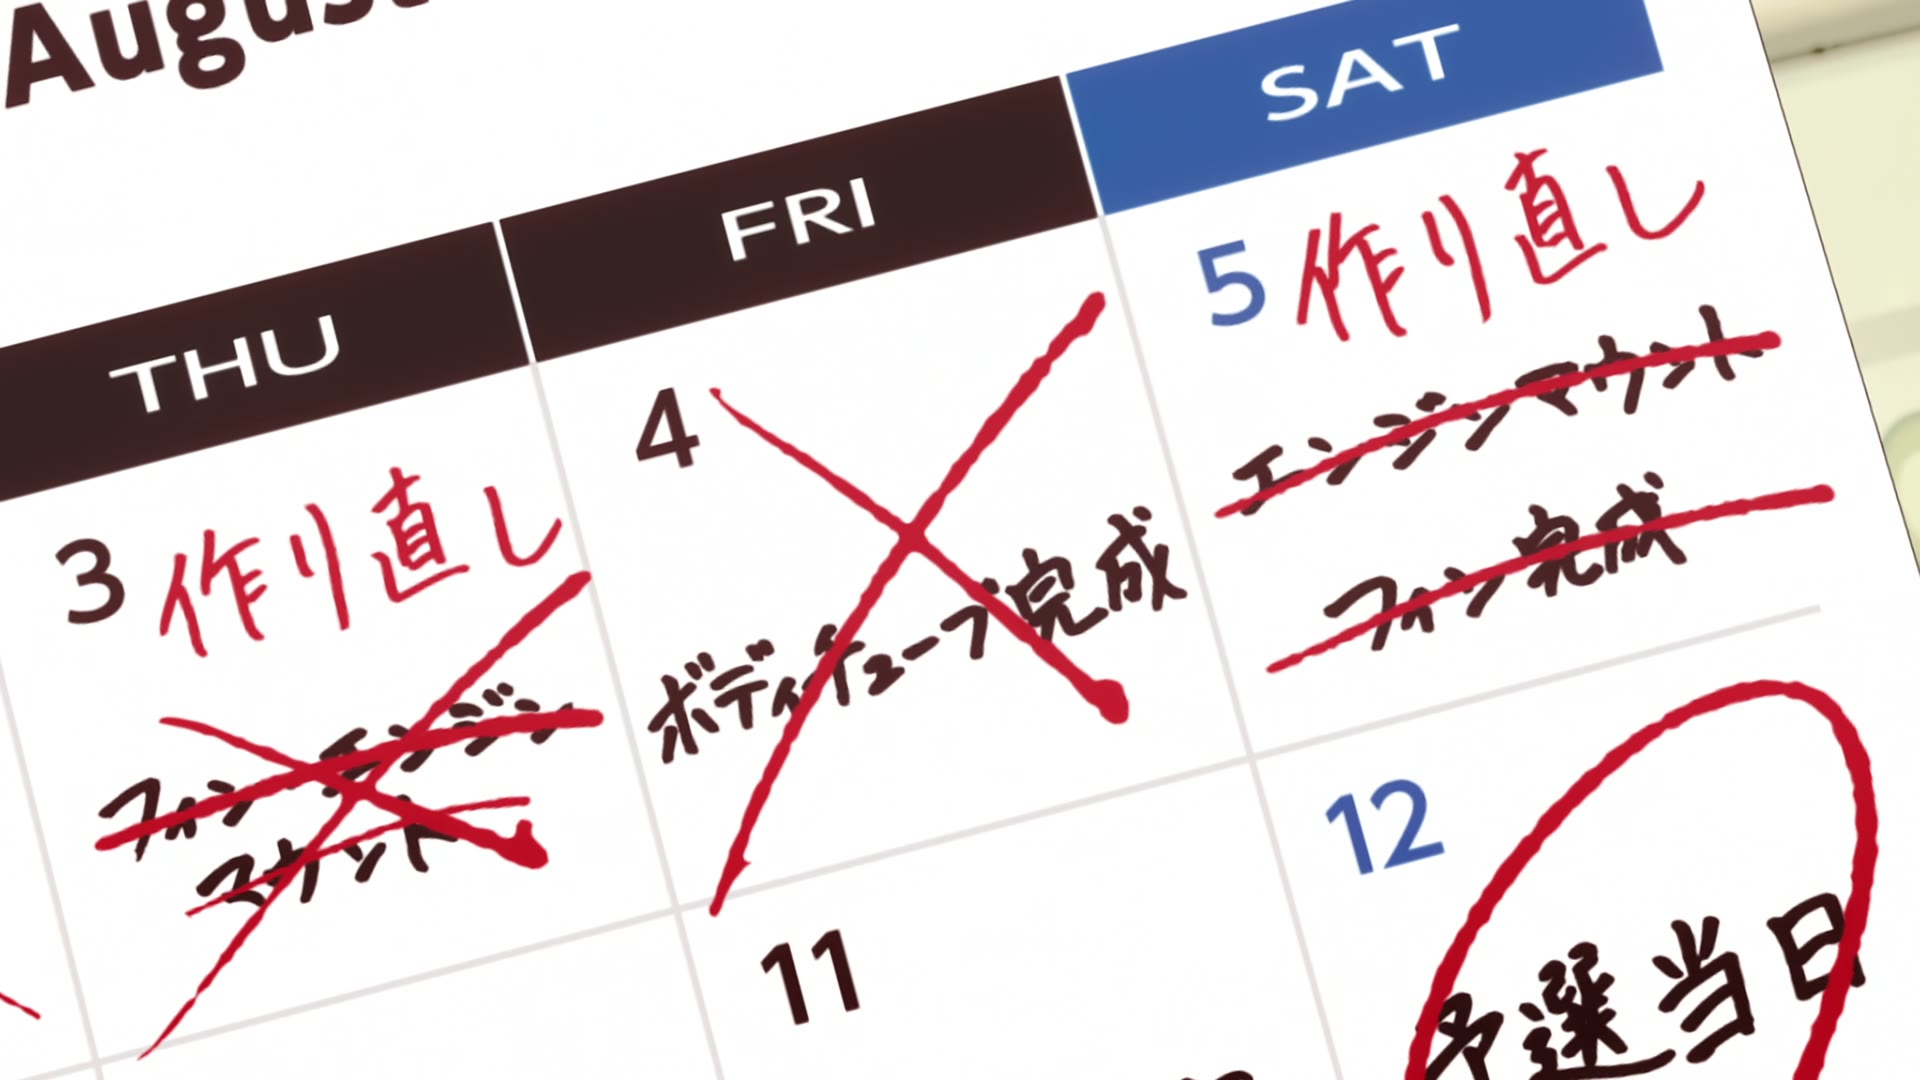 August
THU
FRI
SAT
3 作り直し
フィンエンジン
マウント
4
ボディチューブ完成
5 作り直し
エンジンマウント
フィン完成
11
12
予選当日